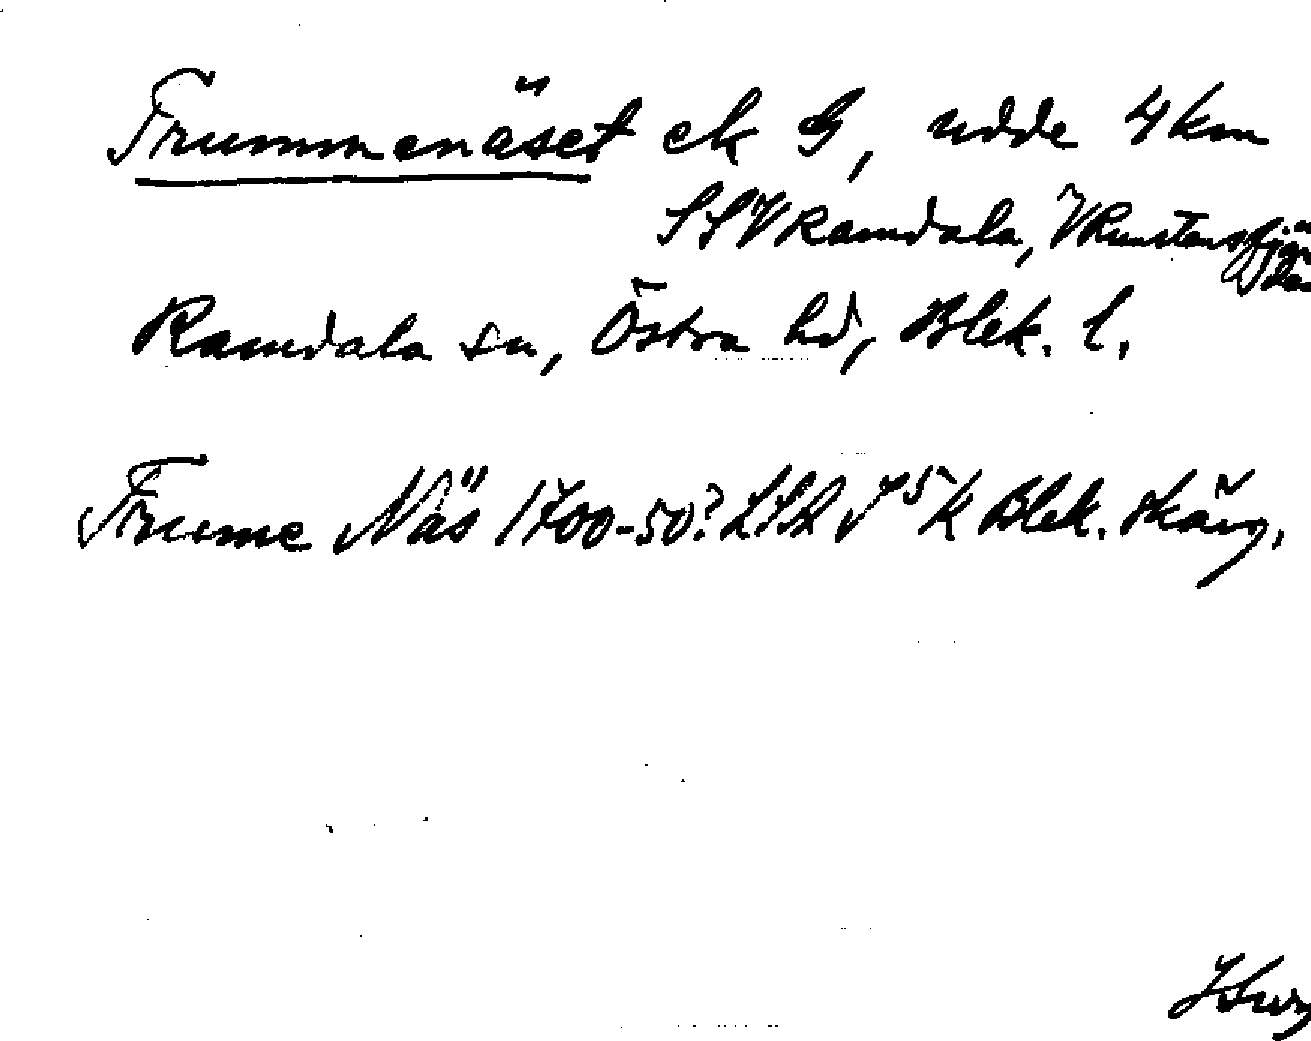 Trummenäset ek G, udde 4 km
SSV Ramdala, V
Ramdala sn, Östra hd, Blek. l.
Trume Näs 1700-50? LSA Blek. skärg.